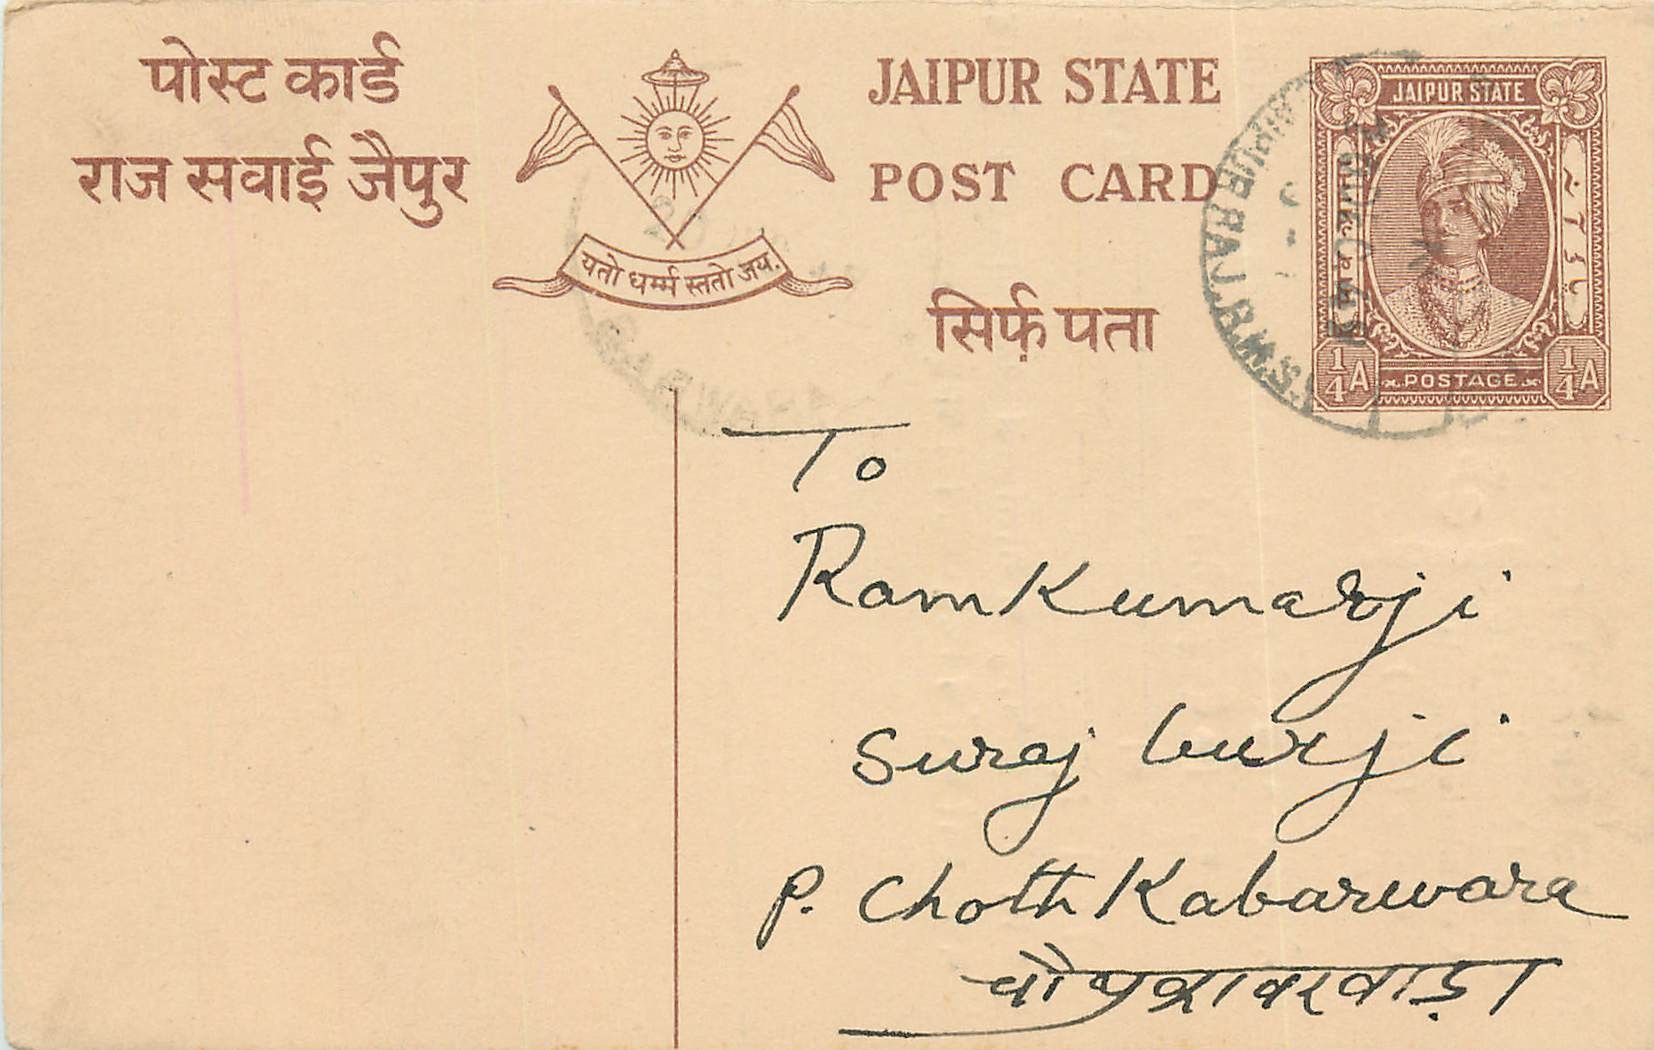 पोस्ट कार्ड
राज सवाई जैपुर
यतो धर्म्म स्ततो जय.
JAIPUR STATE
POST CARD
सिर्फ़ पता
JAIPUR STATE
POSTAGE
1/4 A
1/4 A
RAJ. R.M.S.
To
Ramkumarji
Suraj
P. Choth Kabarwara
चौथकाबरवाड़ा